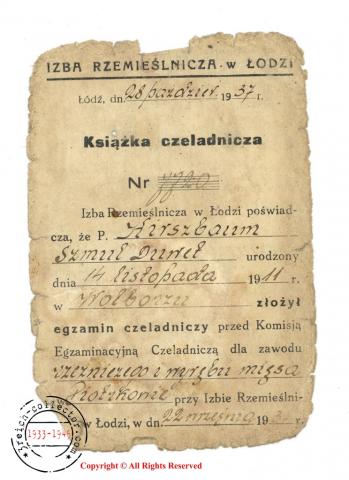 IZBA RZEMIEŚLNICZA w ŁODZI
Łódź, dn. 28 paździer 1937 r.
Książka czeladnicza
Nr 7720
Izba Rzemieślnicza w Łodzi poświad-
cza, że P. Hirszbaum
Szmul Duwet urodzony
dnia 14 listopada 1911 r.
w Wolborzu złożył
egzamin czeladniczy przed Komisją
Egzaminacyjną Czeladniczą dla zawodu
rzeźniczego i wyrębu mięsa
Piotrkowie przy Izbie Rzemieślni-
w Łodzi, w dn. 22 września 193
reich-collector.com
1933-1945
Copyright © All Rights Reserved